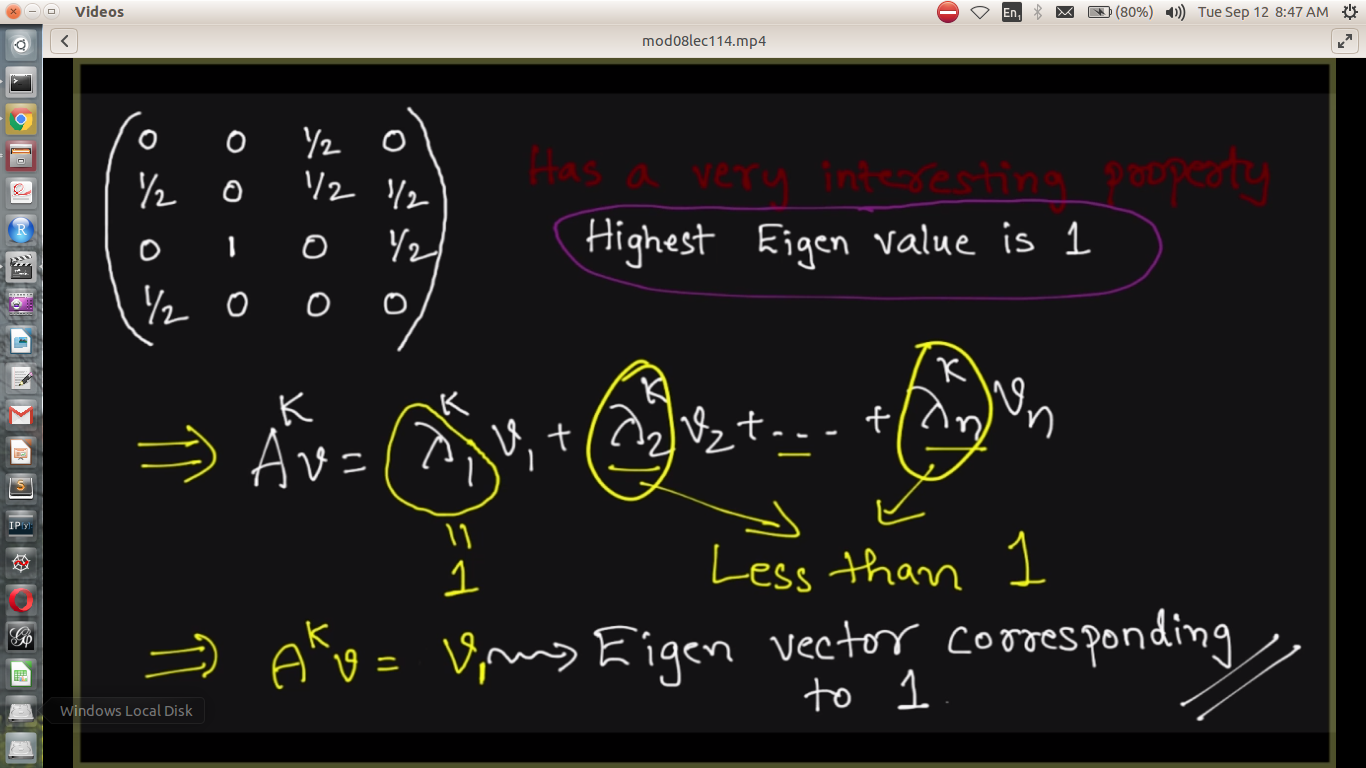 Videos
En₁
(80%)
Tue Sep 12 8:47 AM
mod08lec114.mp4
0 0 1/2 0
1/2 0 1/2 1/2
0 1 0 1/2
1/2 0 0 0
Has a very interesting property
Highest Eigen value is 1
⇒ Aᴷv = λ₁ᴷ v₁ + λ₂ᴷ v₂ + --- + λₙᴷ vₙ
= 1
Less than 1
⇒ Aᴷv = v₁ → Eigen vector corresponding
to 1
Windows Local Disk
IP[y]: